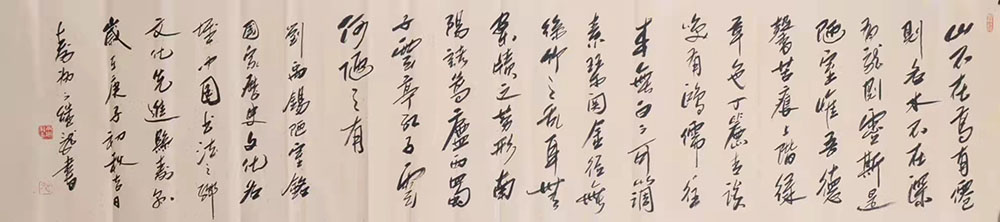 山不在高有僊
則名水不在深
有龍則靈斯是
陋室惟吾德
馨苔痕上階緑
草色入簾青談
笑有鴻儒往
来無白丁可調
素琴閱金經無
絲竹之乱耳無
案牘之勞形南
陽諸葛廬西蜀
子雲亭孔子雲
何陋之有
劉禹錫陋室銘
國家歷史文化名
城中國書法之鄉
文化先進縣壽縣
歲在庚子初秋吉日
書